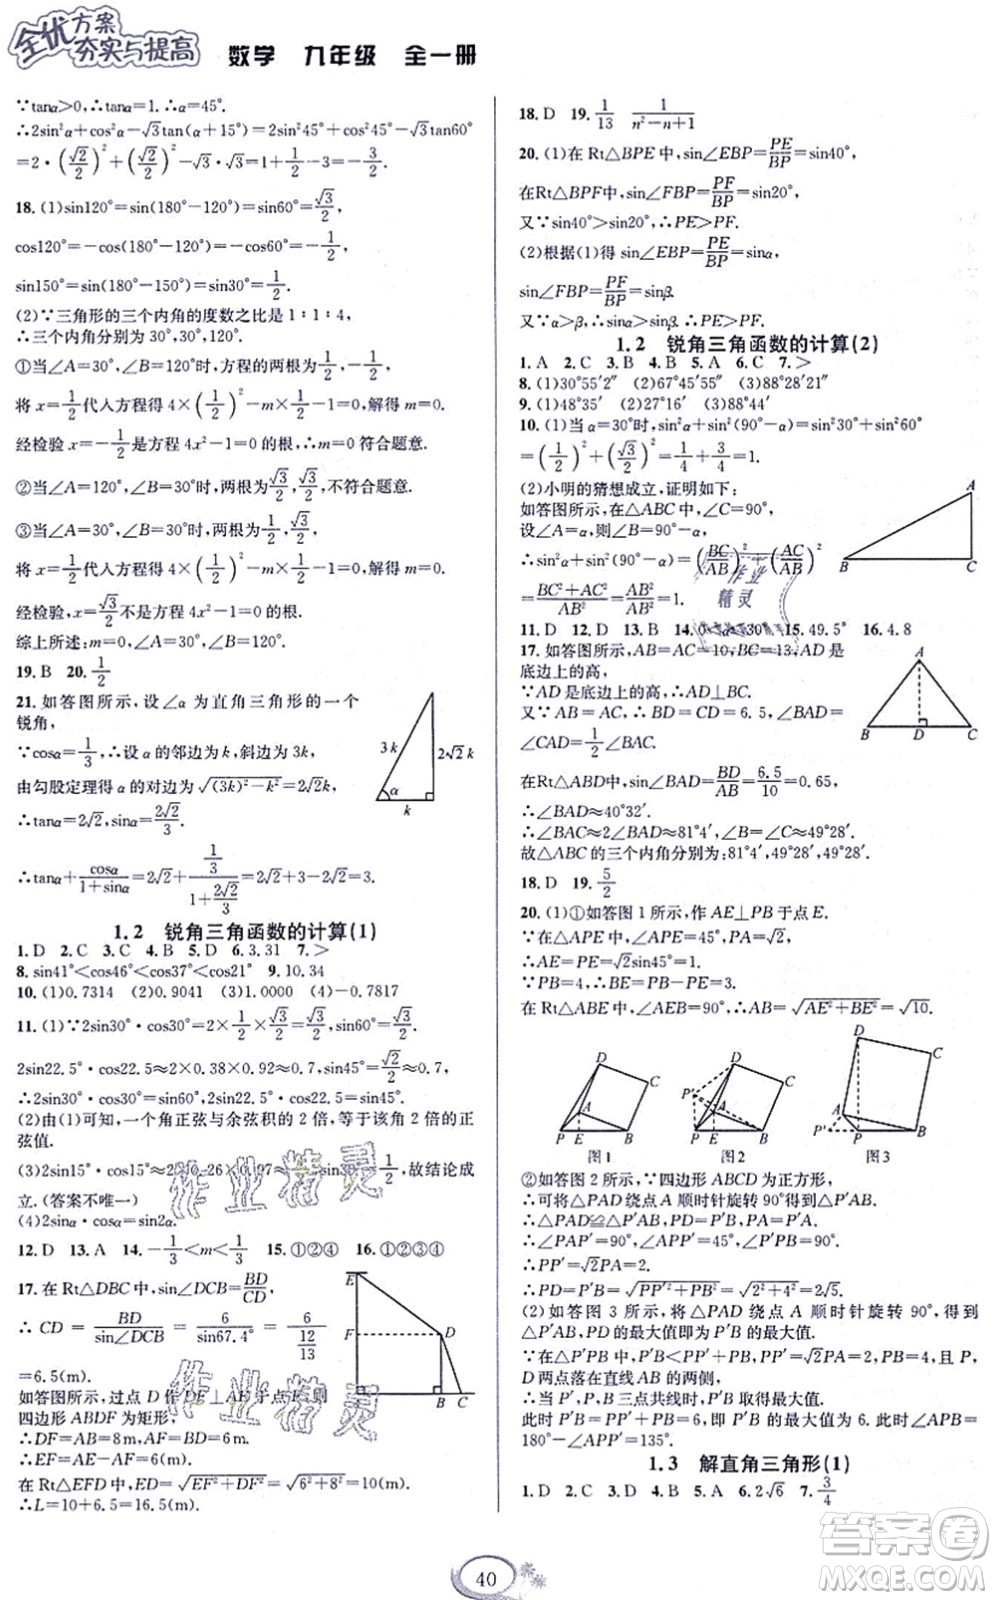 全优方案
夯实与提高
数学 九年级 全一册
∵tanα>0,∴tanα=1.∴α=45°.
∴2sin²α+cos²α-√3tan(α+15°)=2sin²45°+cos²45°-√3tan60°
=2·(√2/2)²+(√2/2)²-√3·√3=1+1/2-3=-3/2.
18. (1)sin120°=sin(180°-120°)=sin60°=√3/2,
cos120°=-cos(180°-120°)=-cos60°=-1/2,
sin150°=sin(180°-150°)=sin30°=1/2.
(2)∵三角形的三个内角的度数之比是1∶1∶4,
∴三个内角分别为30°,30°,120°.
①当∠A=30°,∠B=120°时,方程的两根为1/2,-1/2,
将x=1/2代入方程得4×(1/2)²-m×1/2-1=0,解得m=0.
经检验x=-1/2是方程4x²-1=0的根,∴m=0符合题意.
②当∠A=120°,∠B=30°时,两根为√3/2,√3/2,不符合题意.
③当∠A=30°,∠B=30°时,两根为1/2,√3/2,
将x=1/2代入方程得4×(1/2)²-m×1/2-1=0,解得m=0.
经检验,x=√3/2不是方程4x²-1=0的根.
综上所述:m=0,∠A=30°,∠B=120°.
19. B 20. 1/2
21. 如答图所示,设∠α为直角三角形的一个
锐角,
∵cosα=1/3,∴设α的邻边为k,斜边为3k,
由勾股定理得α的对边为√((3k)²-k²)=2√2k.
∴tanα=2√2,sinα=2√2/3.
∴tanα+cosα/(1+sinα)=2√2+(1/3)/(1+2√2/3)=3.
3k 2√2k α k
1.2 锐角三角函数的计算(1)
1. D 2. C 3. C 4. B 5. D 6. 3.31 7. >
8. sin41°<cos46°<cos37°<cos21° 9. 10.34
10. (1)0.7314 (2)0.9041 (3)1.0000 (4)-0.7817
11. (1)∵2sin30°·cos30°=2×1/2×√3/2=√3/2,sin60°=√3/2,
2sin22.5°·cos22.5≈2×0.38×0.92≈0.7,sin45°=√2/2≈0.7,
∴2sin30°·cos30°=sin60°,2sin22.5°·cos22.5=sin45°.
(2)由(1)可知,一个角正弦与余弦积的2倍,等于该角2倍的正
弦值.
(3)2sin15°·cos15°≈2×0.26×0.97≈1/2,sin30°=1/2,故结论成
立.(答案不唯一)
(4)2sinα·cosα=sin2α.
12. D 13. A 14. -1/3<m<1/3 15. ①②④ 16. ①②③④
17. 在Rt△DBC中,sin∠DCB=BD/CD,
∴CD=BD/sin∠DCB=6/sin67.4°=6/(12/13)
=6.5(m).
如答图所示,过点D作DF⊥AE于点F,则
四边形ABDF为矩形,
∴DF=AB=8m,AF=BD=6(m).
∴EF=AE-AF=6(m).
在Rt△EFD中,ED=√(EF²+DF²)=10(m).
∴L=10+6.5=16.5(m).
E F D B C
18. D 19. 1/13 1/(n²-n+1)
20. (1)在Rt△BPE中,sin∠EBP=PE/BP=sin40°,
在Rt△BPF中,sin∠FBP=PF/BP=sin20°,
又∵sin40°>sin20°,∴PE>PF.
(2)根据(1)得 sin∠EBP=PE/BP=sinα,
sin∠FBP=PF/BP=sinβ.
又∵α>β,∴sinα>sinβ.∴PE>PF.
1.2 锐角三角函数的计算(2)
1. A 2. C 3. B 4. B 5. A 6. C 7. >
8. (1)30°55′2″ (2)67°45′55″ (3)88°28′21″
9. (1)48°35′ (2)27°16′ (3)88°44′
10. (1)当α=30°时,sin²α+sin²(90°-α)=sin²30°+sin²60°
=(1/2)²+(√3/2)²=1/4+3/4=1.
(2)小明的猜想成立,证明如下:
如答图所示,在△ABC中,∠C=90°,
设∠A=α,则∠B=90°-α,
∴sin²α+sin²(90°-α)=(BC/AB)²+(AC/AB)²
=(BC²+AC²)/AB²=AB²/AB²=1.
A B C
11. D 12. D 13. B 14. 0°<α<30° 15. 49.5° 16. 4.8
17. 如答图所示,AB=AC=10,BC=13,AD是
底边上的高,
∵AD是底边上的高,∴AD⊥BC.
又∵AB=AC,∴BD=CD=6.5,∠BAD=
∠CAD=1/2∠BAC.
在Rt△ABD中,sin∠BAD=BD/AB=6.5/10=0.65,
∴∠BAD≈40°32′.
∴∠BAC≈2∠BAD≈81°4′,∠B=∠C≈49°28′.
故△ABC的三个内角分别为:81°4′,49°28′,49°28′.
A B D C
18. D 19. 5/2
20. (1)①如答图1所示,作AE⊥PB于点E.
∵在△APE中,∠APE=45°,PA=√2,
∴AE=PE=√2sin45°=1.
∵PB=4,∴BE=PB-PE=3.
在Rt△ABE中,∠AEB=90°,∴AB=√(AE²+BE²)=√10.
D C A P E B
图1
D P′ C A P E B
图2
D C A P′ P B
图3
②如答图2所示,∵四边形ABCD为正方形,
∴可将△PAD绕点A顺时针旋转90°得到△P′AB.
∴△PAD≌△P′AB,PD=P′B,PA=P′A.
∴∠PAP′=90°,∠APP′=45°,∠P′PB=90°.
∴PP′=√2PA=2.
∴PD=P′B=√(PP′²+PB²)=√(2²+4²)=2√5.
(2)如答图3所示,将△PAD绕点A顺时针旋转90°,得到
△P′AB,PD的最大值即为P′B的最大值.
∵在△P′PB中,P′B<PP′+PB,PP′=√2PA=2,PB=4,且P、
D两点落在直线AB的两侧,
∴当P′、P、B三点共线时,P′B取得最大值.
此时P′B=PP′+PB=6,即P′B的最大值为6.此时∠APB=
180°-∠APP′=135°.
1.3 解直角三角形(1)
1. D 2. D 3. A 4. B 5. A 6. 2√6 7. 3/4
作业精灵
作业精灵
作业精灵
40
答案卷
MXQE.COM